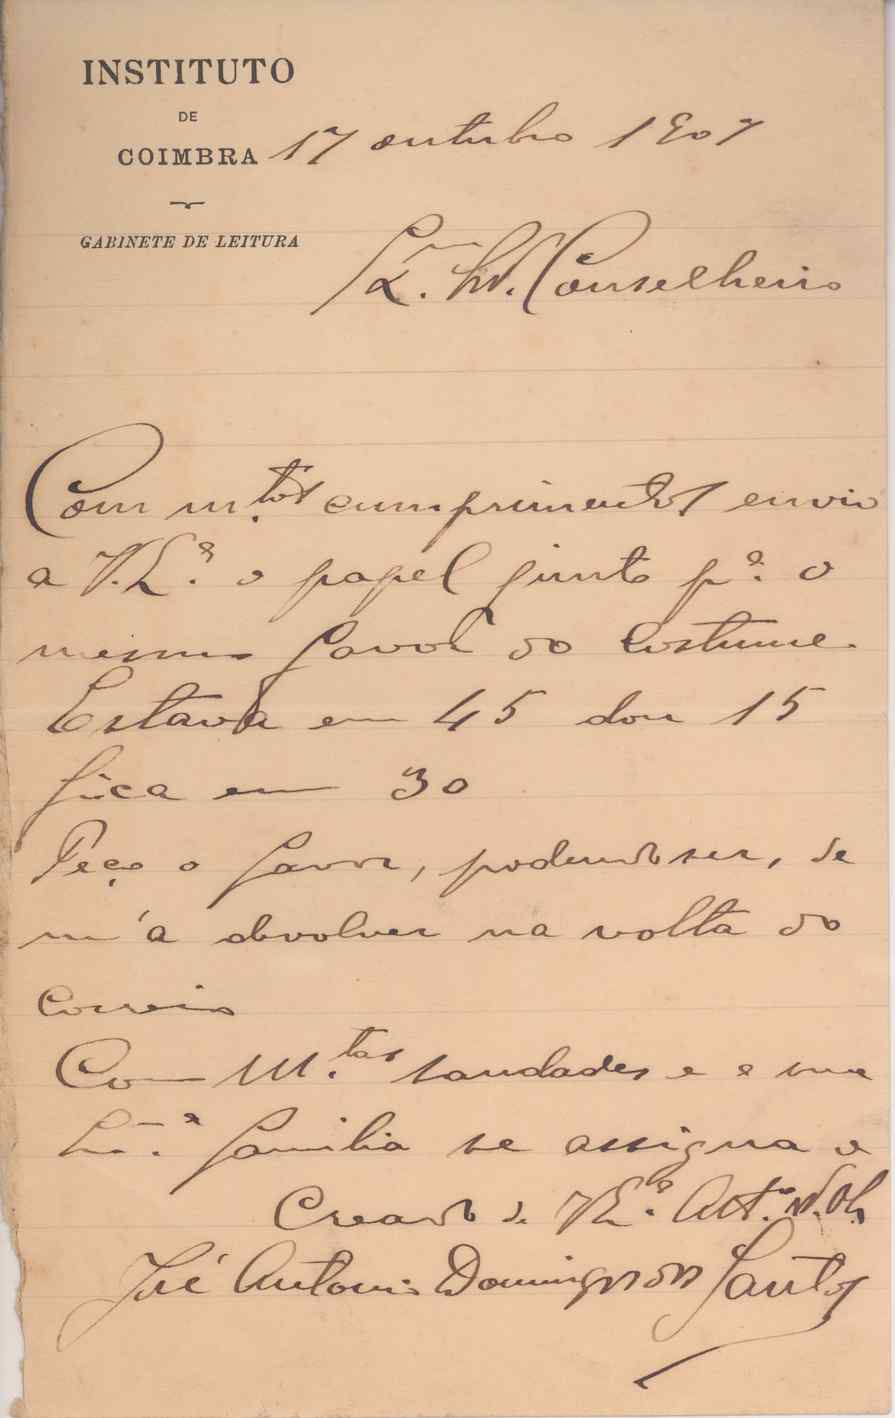 INSTITUTO
DE
COIMBRA
17 outubro 1907
GABINETE DE LEITURA
Ex.mo Snr. Conselheiro
Com m.tos cumprimentos envio
a V. Ex.ª o papel junto p.ª o
mesmo favor do costume.
Estava em 45 dou 15
fica em 30
Peço o favor, podendo ser, de
m'a devolver na volta do
correio
Com M.tas saudades e a sua
Ex.ma familia se assigna o
Creado de V. Ex.ª Att.º
José Antonio Domingos dos Santos